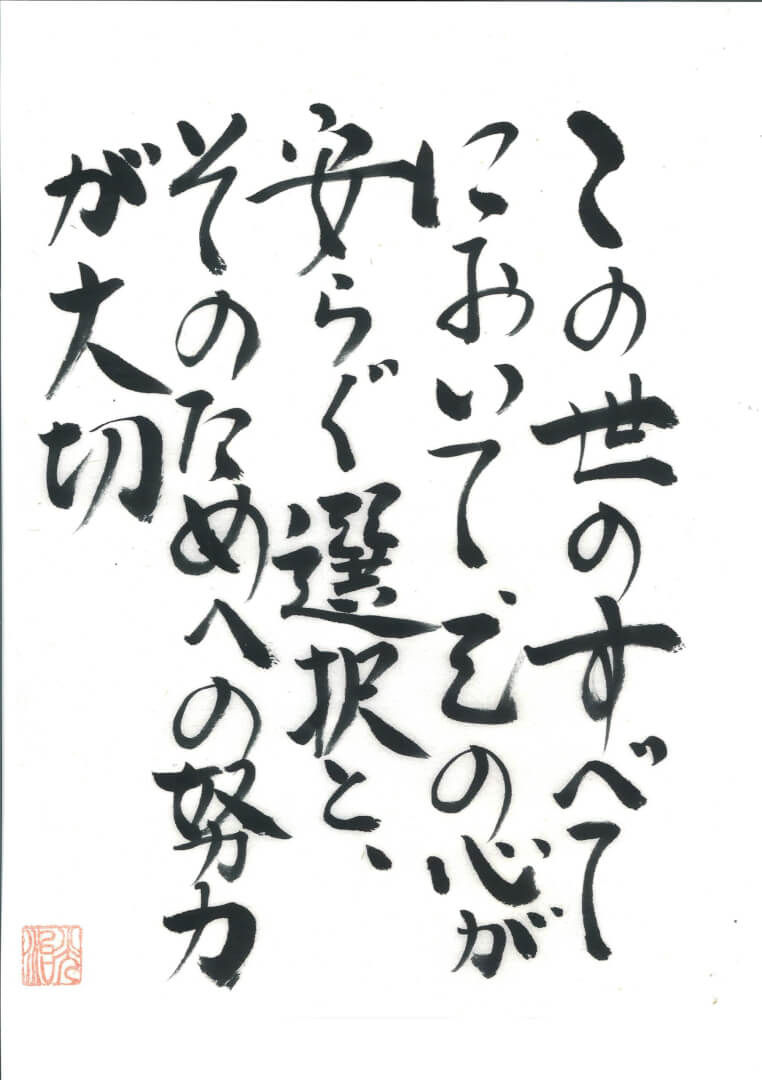 この世のすべて
において、己の心が
安らぐ選択と、
そのためへの努力
が大切